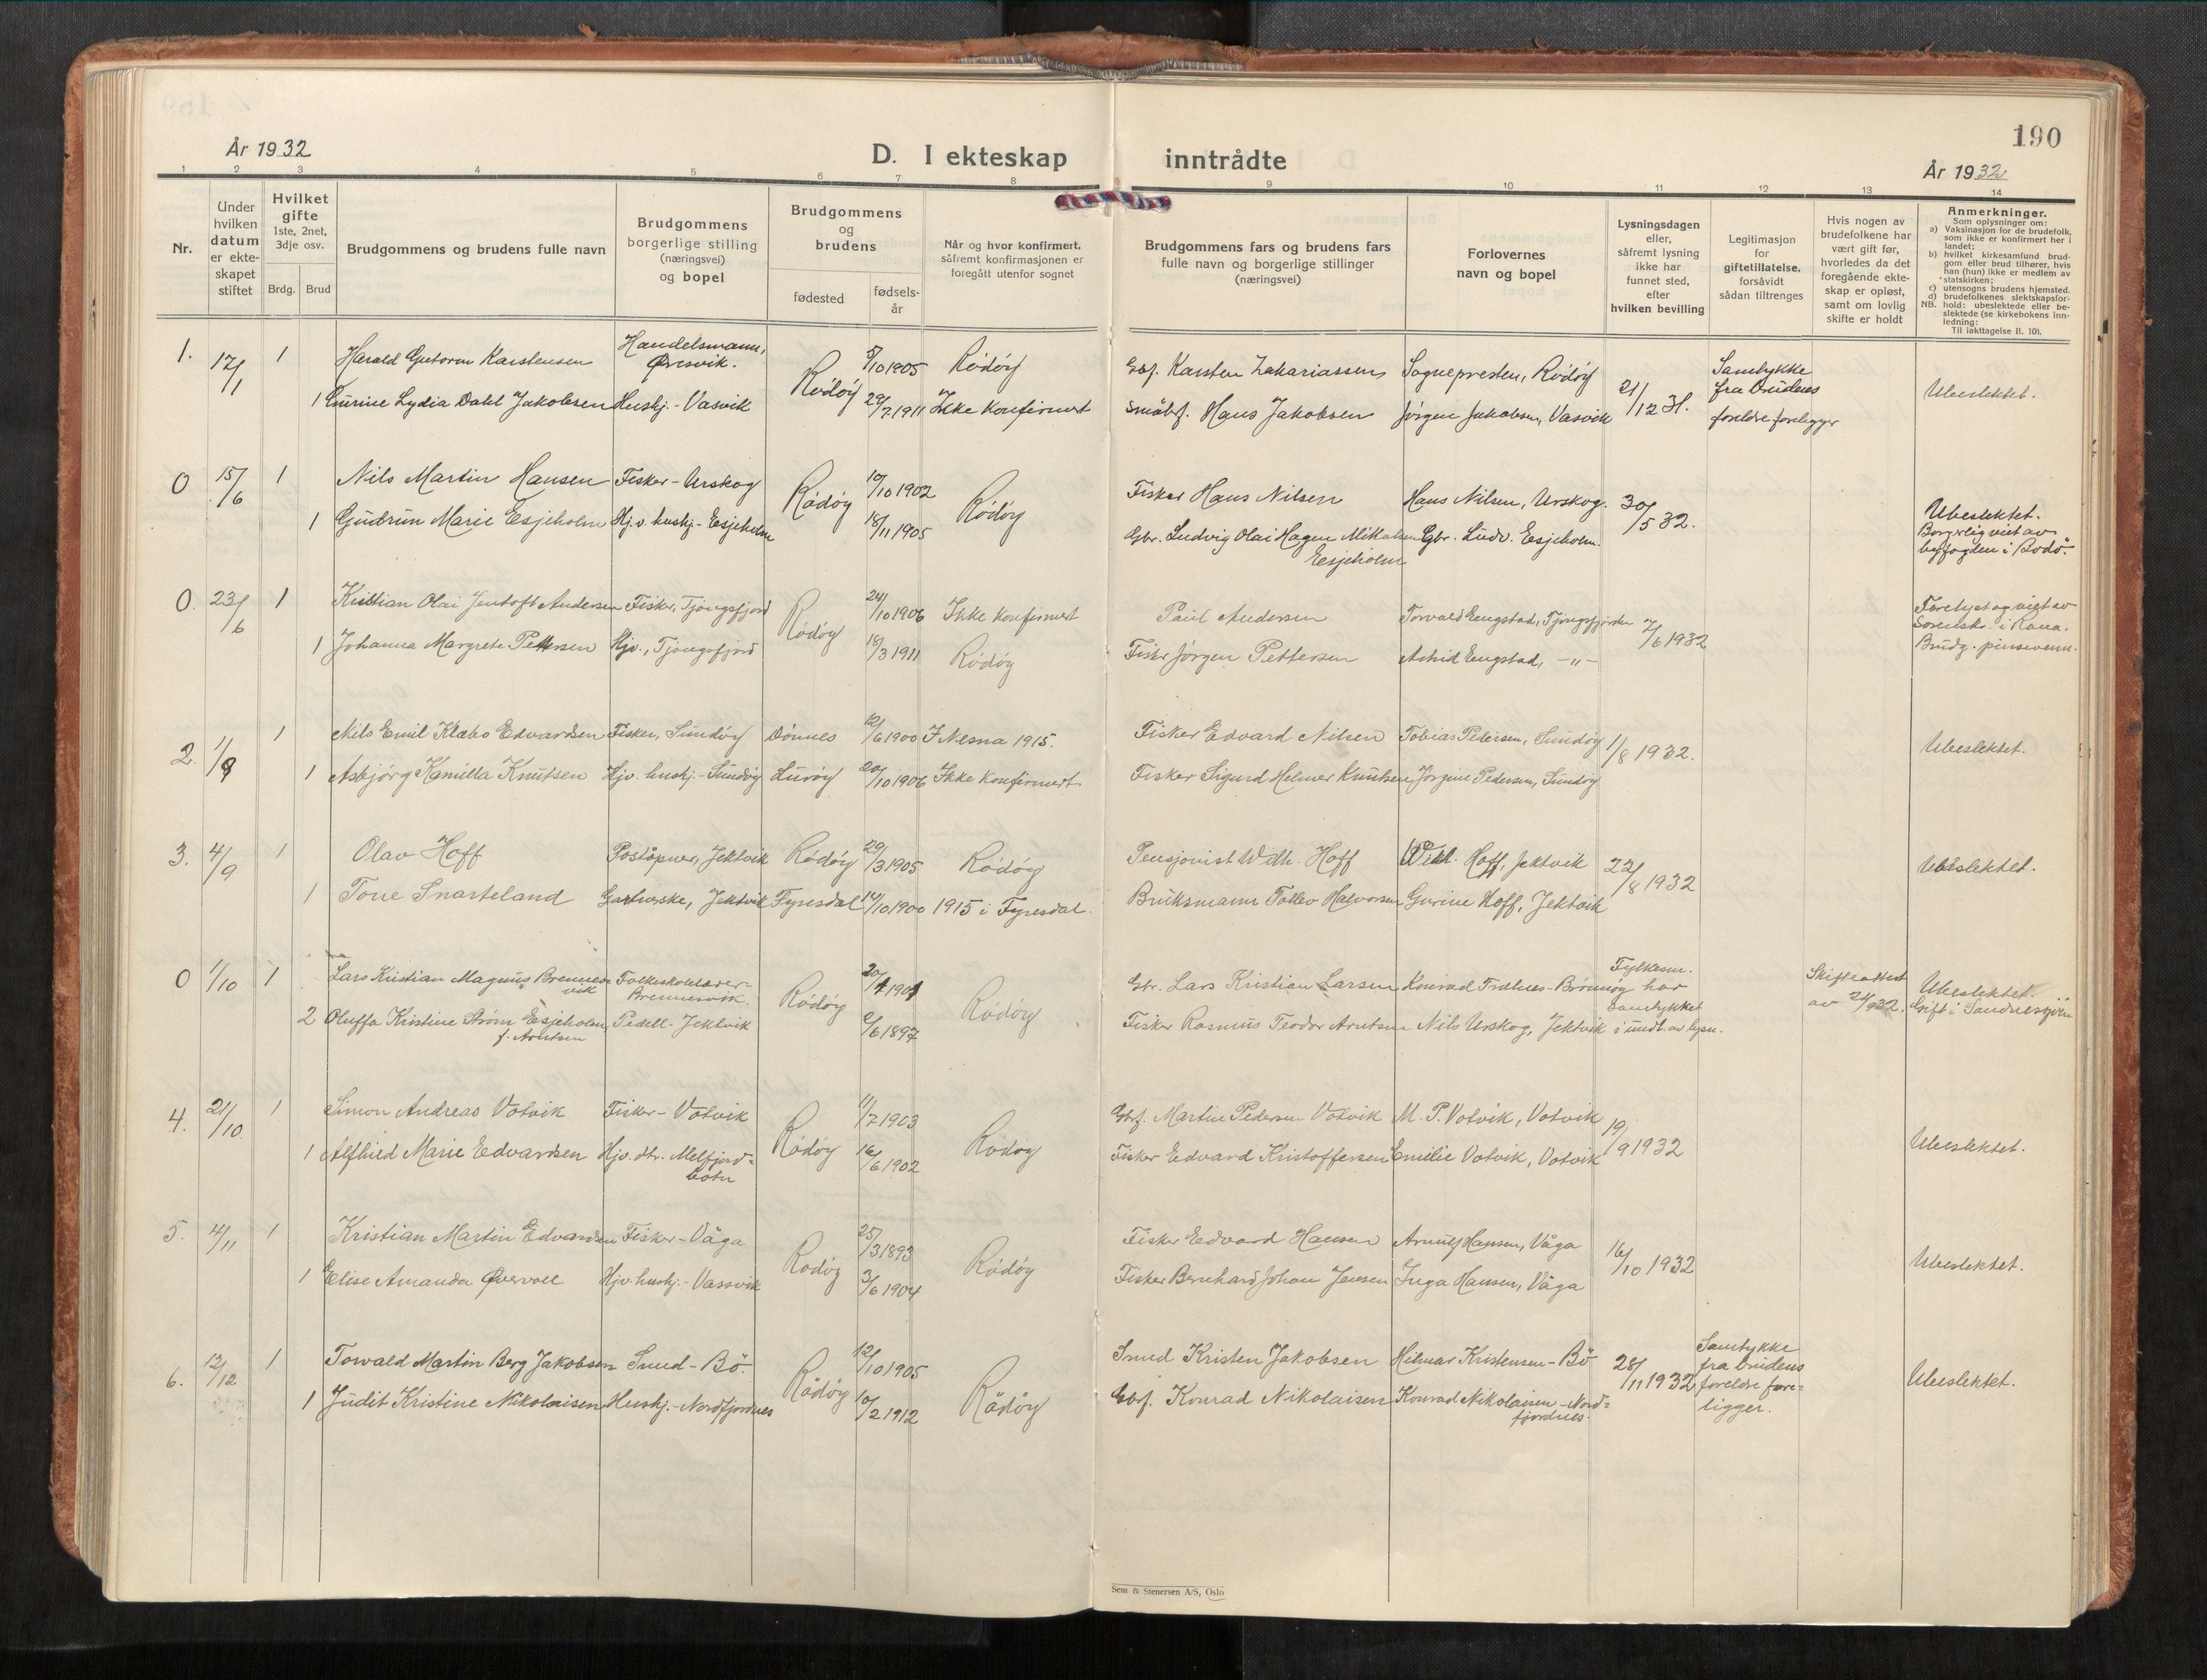 190
År 1932
D. I ekteskap inntrådte
År 1932
1 2 3 4 5 6 7 8 9 10 11 12 13 14
Nr.
Under hvilken datum er ekteskapet stiftet
Hvilket gifte 1ste, 2net, 3dje osv.
Brdg. Brud
Brudgommens og brudens fulle navn
Brudgommens borgerlige stilling (næringsvei) og bopel
Brudgommens og brudens
fødested
fødselsår
Når og hvor konfirmert, såfremt konfirmasjonen er foregått utenfor sognet
Brudgommens fars og brudens fars fulle navn og borgerlige stillinger (næringsvei)
Forlovernes navn og bopel
Lysningsdagen eller, såfremt lysning ikke har funnet sted, efter hvilken bevilling
Legitimasjon for giftetillatelse, forsåvidt sådan tiltrenges
Hvis nogen av brudefolkene har vært gift før, hvorledes da det foregående ekteskap er opløst, samt om lovlig skifte er holdt
Anmerkninger.
Som oplysninger om:
a) Vaksinasjon for de brudefolk, som ikke er konfirmert her i landet;
b) hvilket kirkesamfund brudgom eller brud tilhører, hvis han (hun) ikke er medlem av statskirken;
c) utensogns brudens hjemsted.
d) brudefolkenes slektskapsforhold: ubeslektede eller beslektede (se kirkebokens innledning:
NB.
Til iakttagelse II. 10).
1. 17/1 1 Harald Gutorm Karstensen Handelsmann, Øresvik. Rødøy 5/10 1905 Rødøy Gbf. Karsten Zakariassen Sognepresten, Rødøy 21/12 31. Samtykke fra brudens foreldre foreligger Ubeslektet.
1 Gurine Lydia Dahl Jakobsen Hushj. - Vasvik 29/7 1911 Ikke konfirmert Småbrf. Hans Jakobsen Jørgen Jakobsen, Vasvik
0 15/6 1 Nils Martin Hansen Fisker - Urskog Rødøy 10/10 1902 Rødøy Fisker Hans Nilsen Hans Nilsen, Urskog. 30/5 32. Ubeslektet. Borgerlig viet av byfogden i Bodø.
1 Gudrun Marie Esjeholm Hj. v. hushj. - Esjeholm 18/11 1905 Gbr. Ludvig Olai Hagen Mikalsen Esjeholm Gbr. Ludv. Esjeholm.
0. 23/6 1 Kristian Olai Jentoft Andersen Fisker, Tjongsfjord Rødøy 24/10 1906 Ikke konfirmert Paul Andersen Torvald Engstad, Tjongsfjorden 7/6 1932 Forelyst og viet av Sorenskr. i Rana. Brudg. pinsevenn.
1 Johanna Margrete Pettersen Hjv., Tjongsfjord 19/3 1911 Rødøy Fisker Jørgen Pettersen Astrid Engstad, -"-
2. 1/9 1 Nils Emil Klæbo Edvardsen Fisker, Sundøy Dønnes 12/6 1900 I Nesna 1915. Fisker Edvard Nilsen Tobias Pedersen, Sundøy 1/8 1932. Ubeslektet.
1 Asbjørg Kamilla Knutsen Hjv. hushj. - Sundøy Lurøy 20/10 1906 Ikke konfirmert Fisker Sigurd Helmer Knutsen Jørgine Pedersen, Sundøy
3. 4/9 1 Olav Hoff Poståpner, Jektvik Rødøy 29/3 1905 Rødøy Pensjonist Wilh. Hoff Wilh. Hoff, Jektvik 22/8 1932 Ubeslektet.
1 Tone Snarteland Gartnerske, Jektvik Fyresdal 14/10 1900 1915 i Fyresdal. Bruksmann Tollev Halvorsen Gurine Hoff, Jektvik
0 1/10 1 Lars Kristian Magnus Brennesvik Folkeskolelærer - Brennesvik. Rødøy 20/4 1901 Rødøy Gbr. Lars Kristian Larsen Konrad Trælnes - Brønnøy Fylkesm. har samtykket i undl. av lysn. Skifteattest av 24/9 32. Ubeslektet. Gift i Sandnessjøen
2 Oluffa Kristine Strøm Esjeholm f. Arntsen Pedell - Jektvik 2/6 1897 Fisker Rasmus Teodor Arntsen Nils Urskog, Jektvik
4. 21/10 1 Simon Andreas Votvik Fisker - Votvik Rødøy 11/7 1903 Rødøy Gbf. Martin Pedersen Votvik M. P. Votvik, Votvik 19/9 1932 Ubeslektet.
1 Alfhild Marie Edvardsen Hjv. dtr. Melfjordbotn 16/6 1902 Fisker Edvard Kristoffersen Emilie Votvik, Votvik
5. 4/11 1 Kristian Martin Edvardsen Fisker - Våga Rødøy 25/3 1893 Rødøy Fisker Edvard Hansen Arnulf Hansen, Våga 16/10 1932 Ubeslektet.
1 Elise Amanda Øvervoll Hjv. hushj. - Vassvik 3/6 1904 Fisker Bernhard Johan Jensen Inga Hansen, Våga
6. 12/12 1 Torvald Martin Berg Jakobsen Smed - Bö. Rødøy 12/10 1905 Rødøy Smed Kristen Jakobsen Hilmar Kristensen - Bö 28/11 1932 Samtykke fra brudens foreldre foreligger. Ubeslektet.
1 Judit Kristine Nikolaisen Hushj. - Nordfjordnes 10/2 1912 Gbf. Konrad Nikolaisen Konrad Nikolaisen - Nordfjordnes.
Sem & Stenersen A/S, Oslo